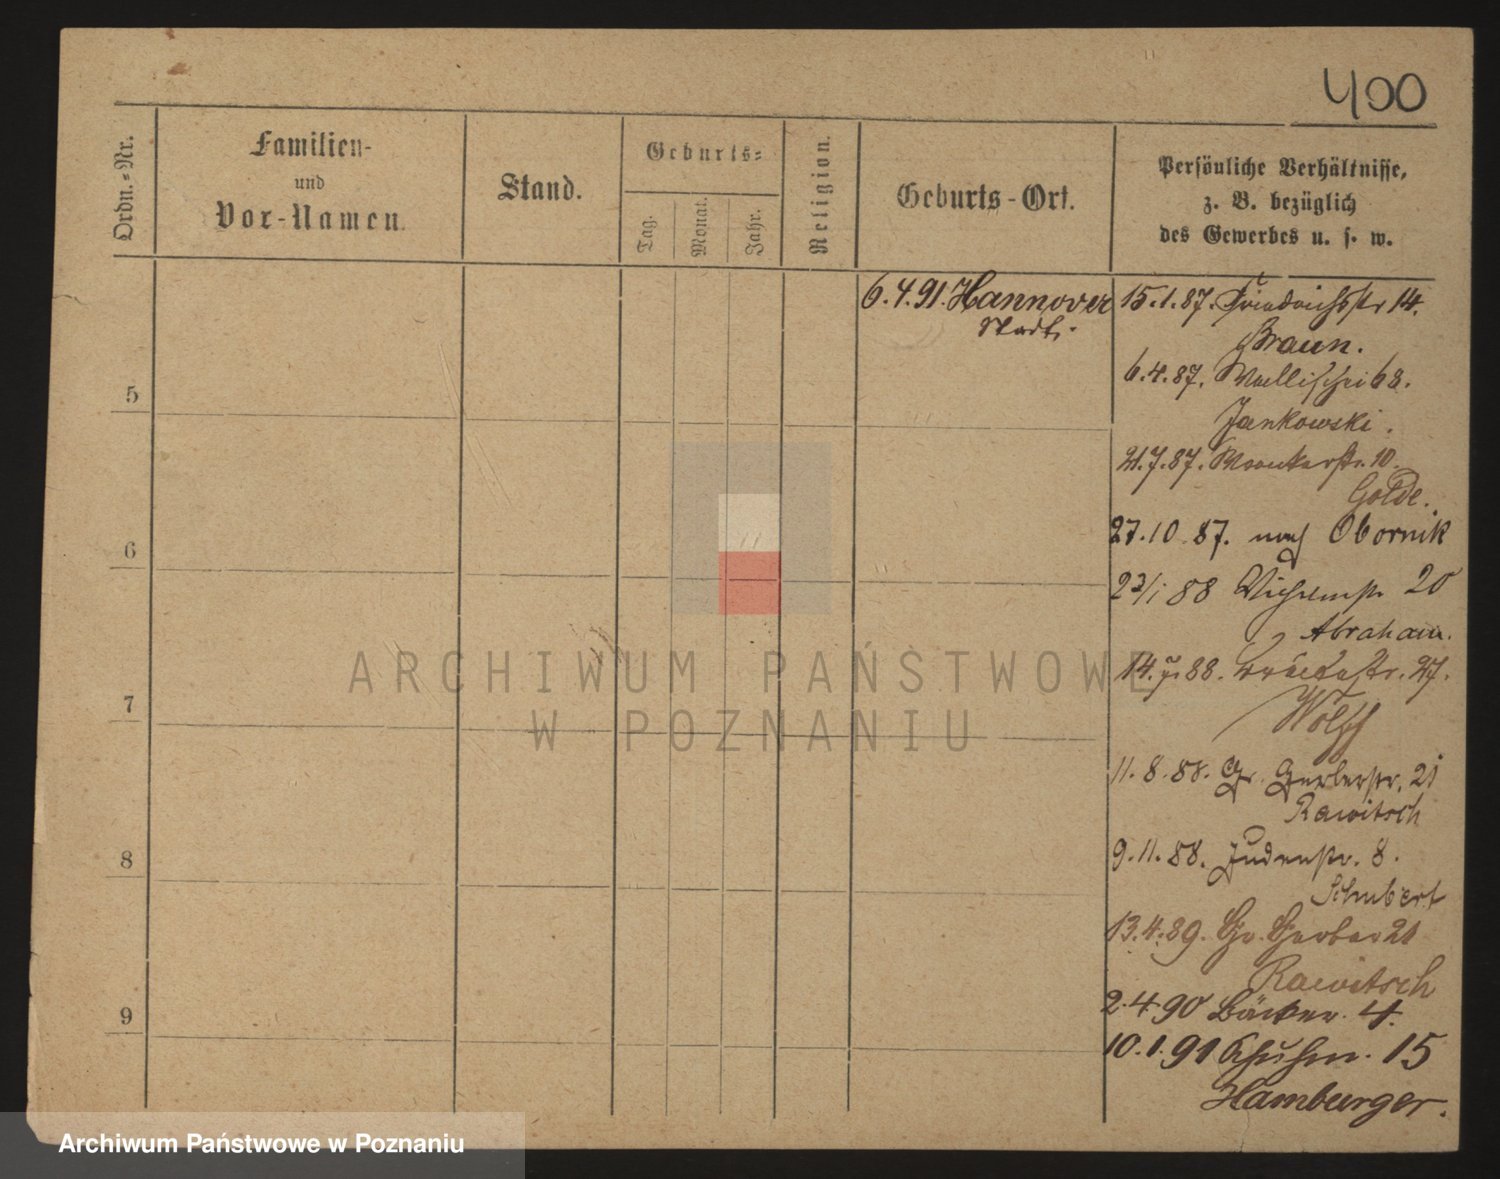 400
Ordn.-Nr.
Familien-
und
Vor-Namen.
Stand.
Geburts-
Tag.
Monat.
Jahr.
Religion.
Geburts-Ort.
Persönliche Verhältnisse,
z. B. bezüglich
des Gewerbes u. s. w.
6.4.91. Hannover
Stadt.
15.1.87. Friedrichstr 14.
Braun.
6.4.87. Wallischei 68.
Jankowski.
21.7.87. Wronkerstr. 10.
Golde.
27.10.87. nach Obornik
23/1 88 20
Abraham.
88. 27.
Wolff
11.8.88. Gr. Gerberstr. 21
Rawitsch
9.11.88. Judenstr. 8.
Schubert
13.4.89. Gr. Gerber 21
Rawitsch
2.4.90 Bäcker. 4.
10.1.91 Schuhm. 15
Hamburger.
5
6
7
8
9
ARCHIWUM PAŃSTWOWE
W POZNANIU
Archiwum Państwowe w Poznaniu